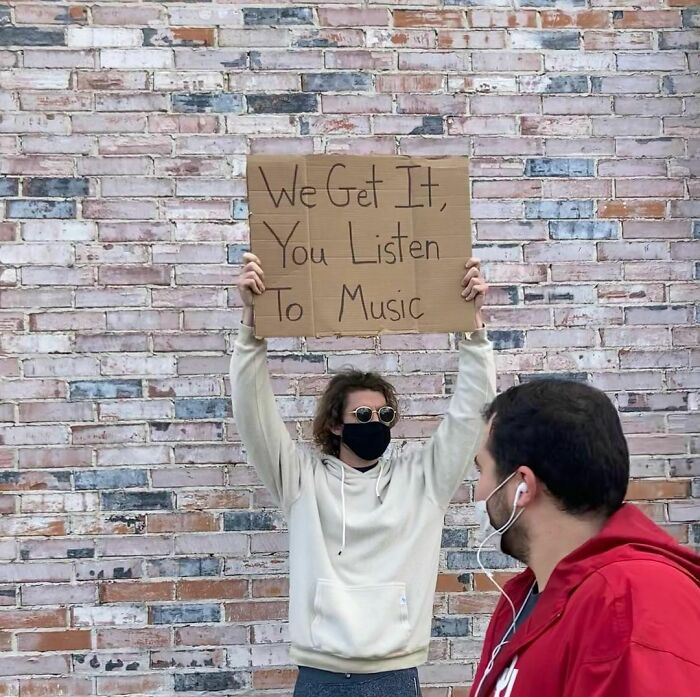 We Get It,
You Listen
To Music